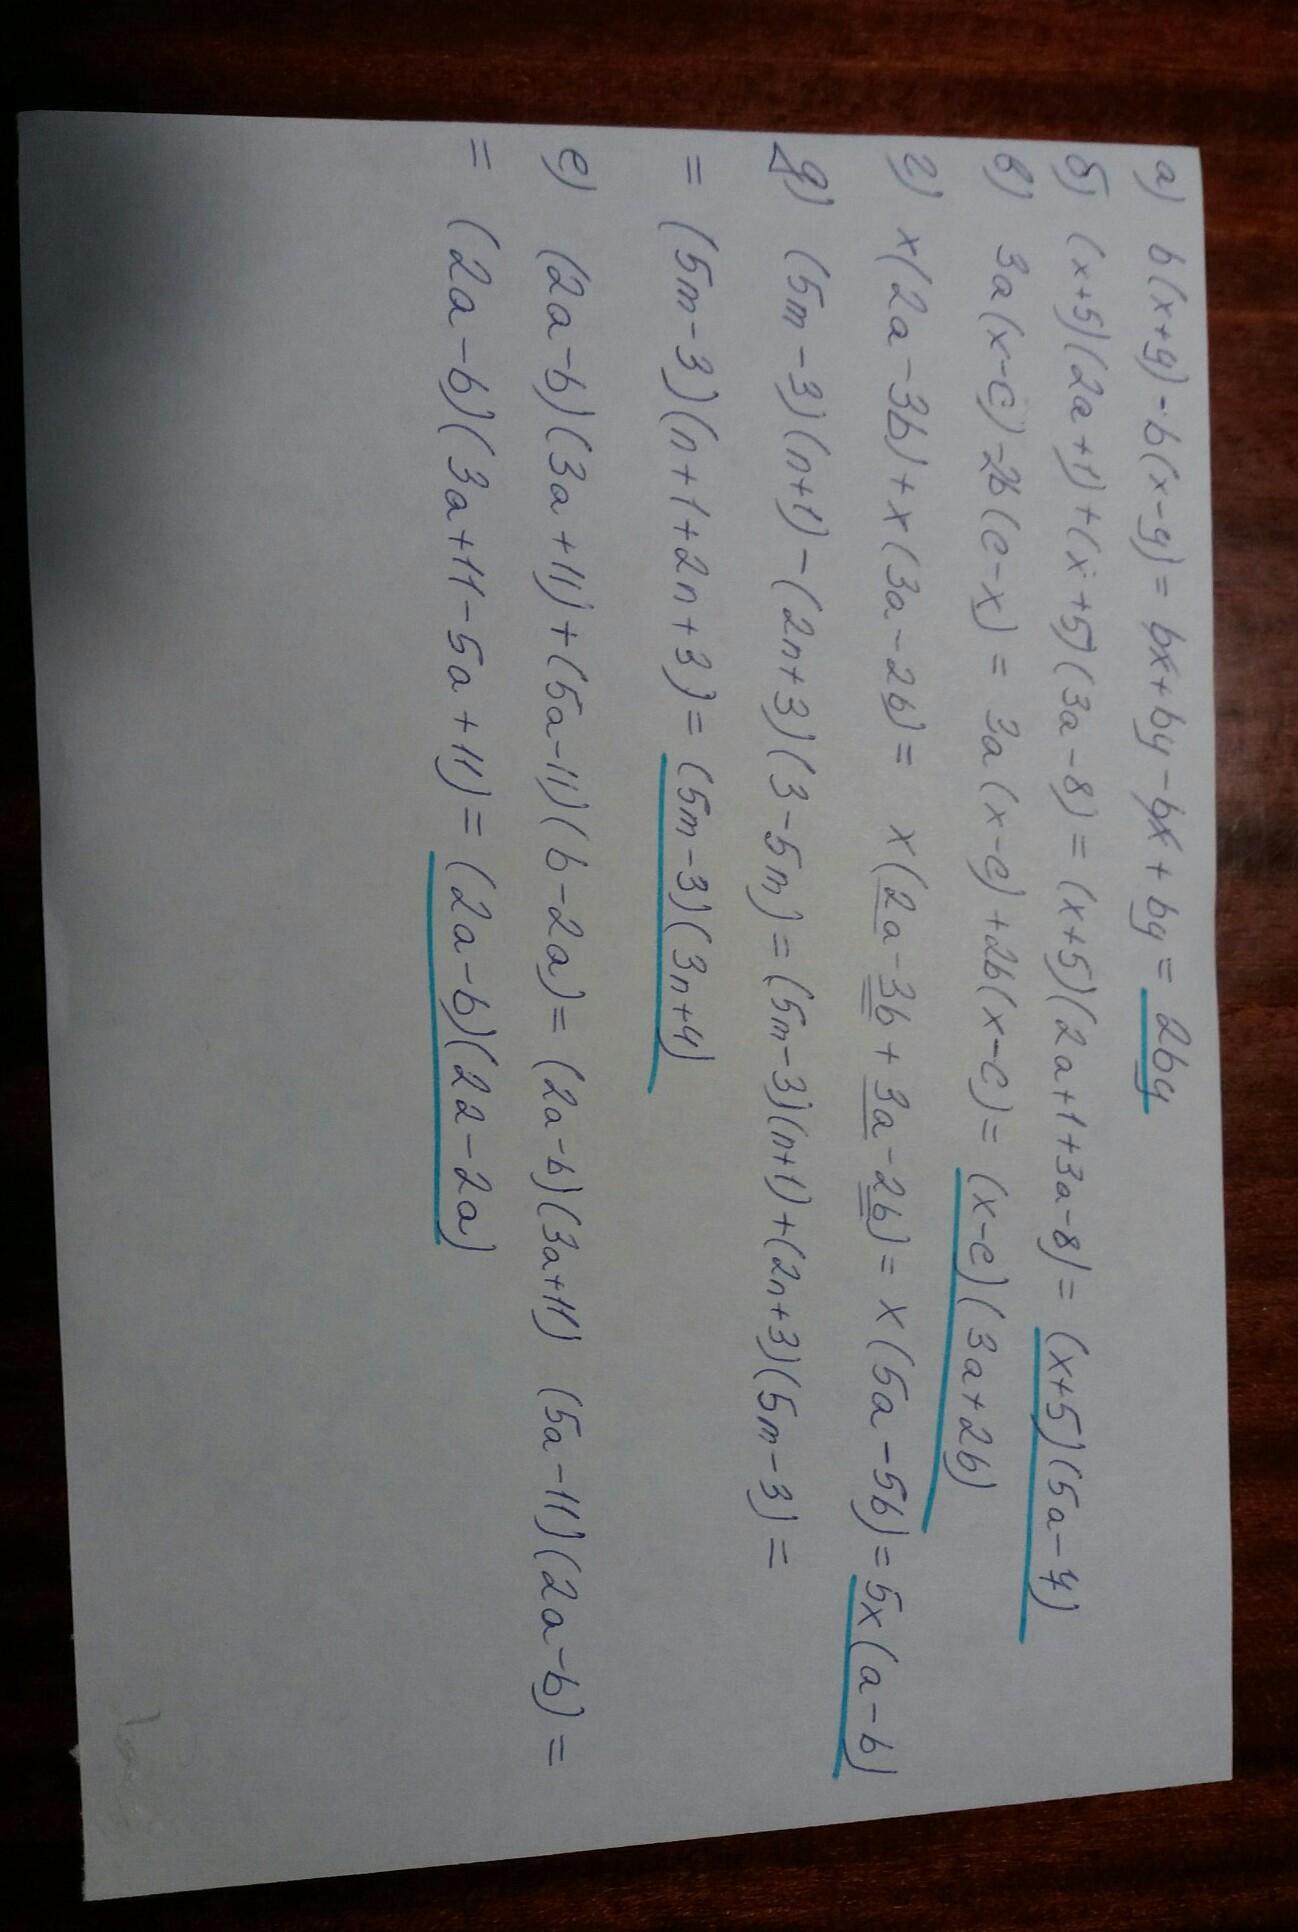 а) b(x+y)-b(x-y)= bx+by-bx+by= 2by
б) (x+5)(2a+1)+(x+5)(3a-8)= (x+5)(2a+1+3a-8)= (x+5)(5a-7)
в) 3a(x-c)-2b(c-x)= 3a(x-c)+2b(x-c)= (x-c)(3a+2b)
г) x(2a-3b)+x(3a-2b)= x(2a-3b+3a-2b)= x(5a-5b)=5x(a-b)
д) (5m-3)(n+1)-(2n+3)(3-5m)=(5m-3)(n+1)+(2n+3)(5m-3)=
= (5m-3)(n+1+2n+3)= (5m-3)(3n+4)
е) (2a-b)(3a+11)+(5a-11)(b-2a)= (2a-b)(3a+11) (5a-11)(2a-b)=
= (2a-b)(3a+11-5a+11)= (2a-b)(22-2a)